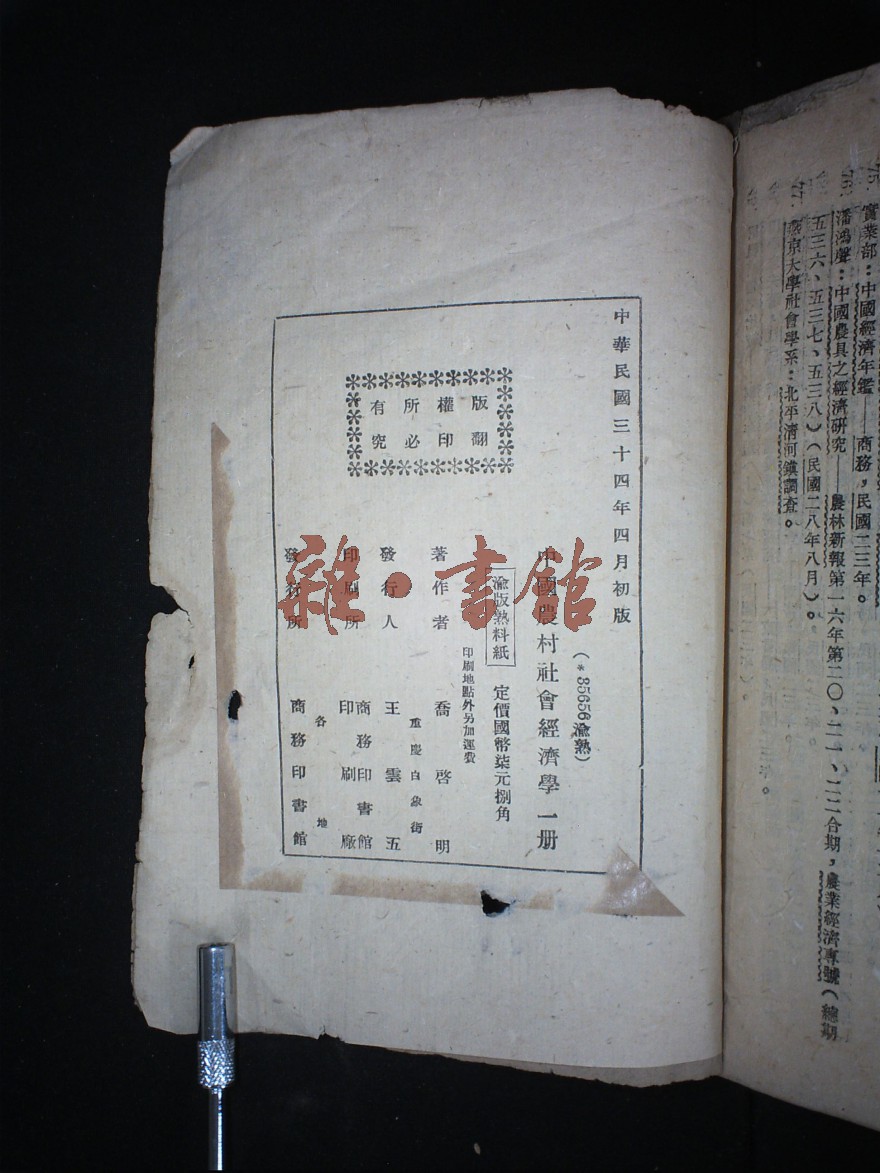 實業部：中國經濟年鑑——商務，民國二三年。
潘鴻聲：中國農具之經濟研究——農林新報第一六年第二〇、二一、二二合期，農業經濟專號（總期
五三六、五三七、五三八）（民國二八年八月）。
燕京大學社會學系：北平清河鎮調查。
中華民國三十四年四月初版
（*85656渝熟）
中國農村社會經濟學一册
渝版熟料紙
定價國幣柒元捌角
印刷地點外另加運費
版權所有
翻印必究
著作者 喬啓明
重慶白象街
發行人 王雲五
印刷所 商務印書館
印刷廠
各地
發行所 商務印書館
雜·書館